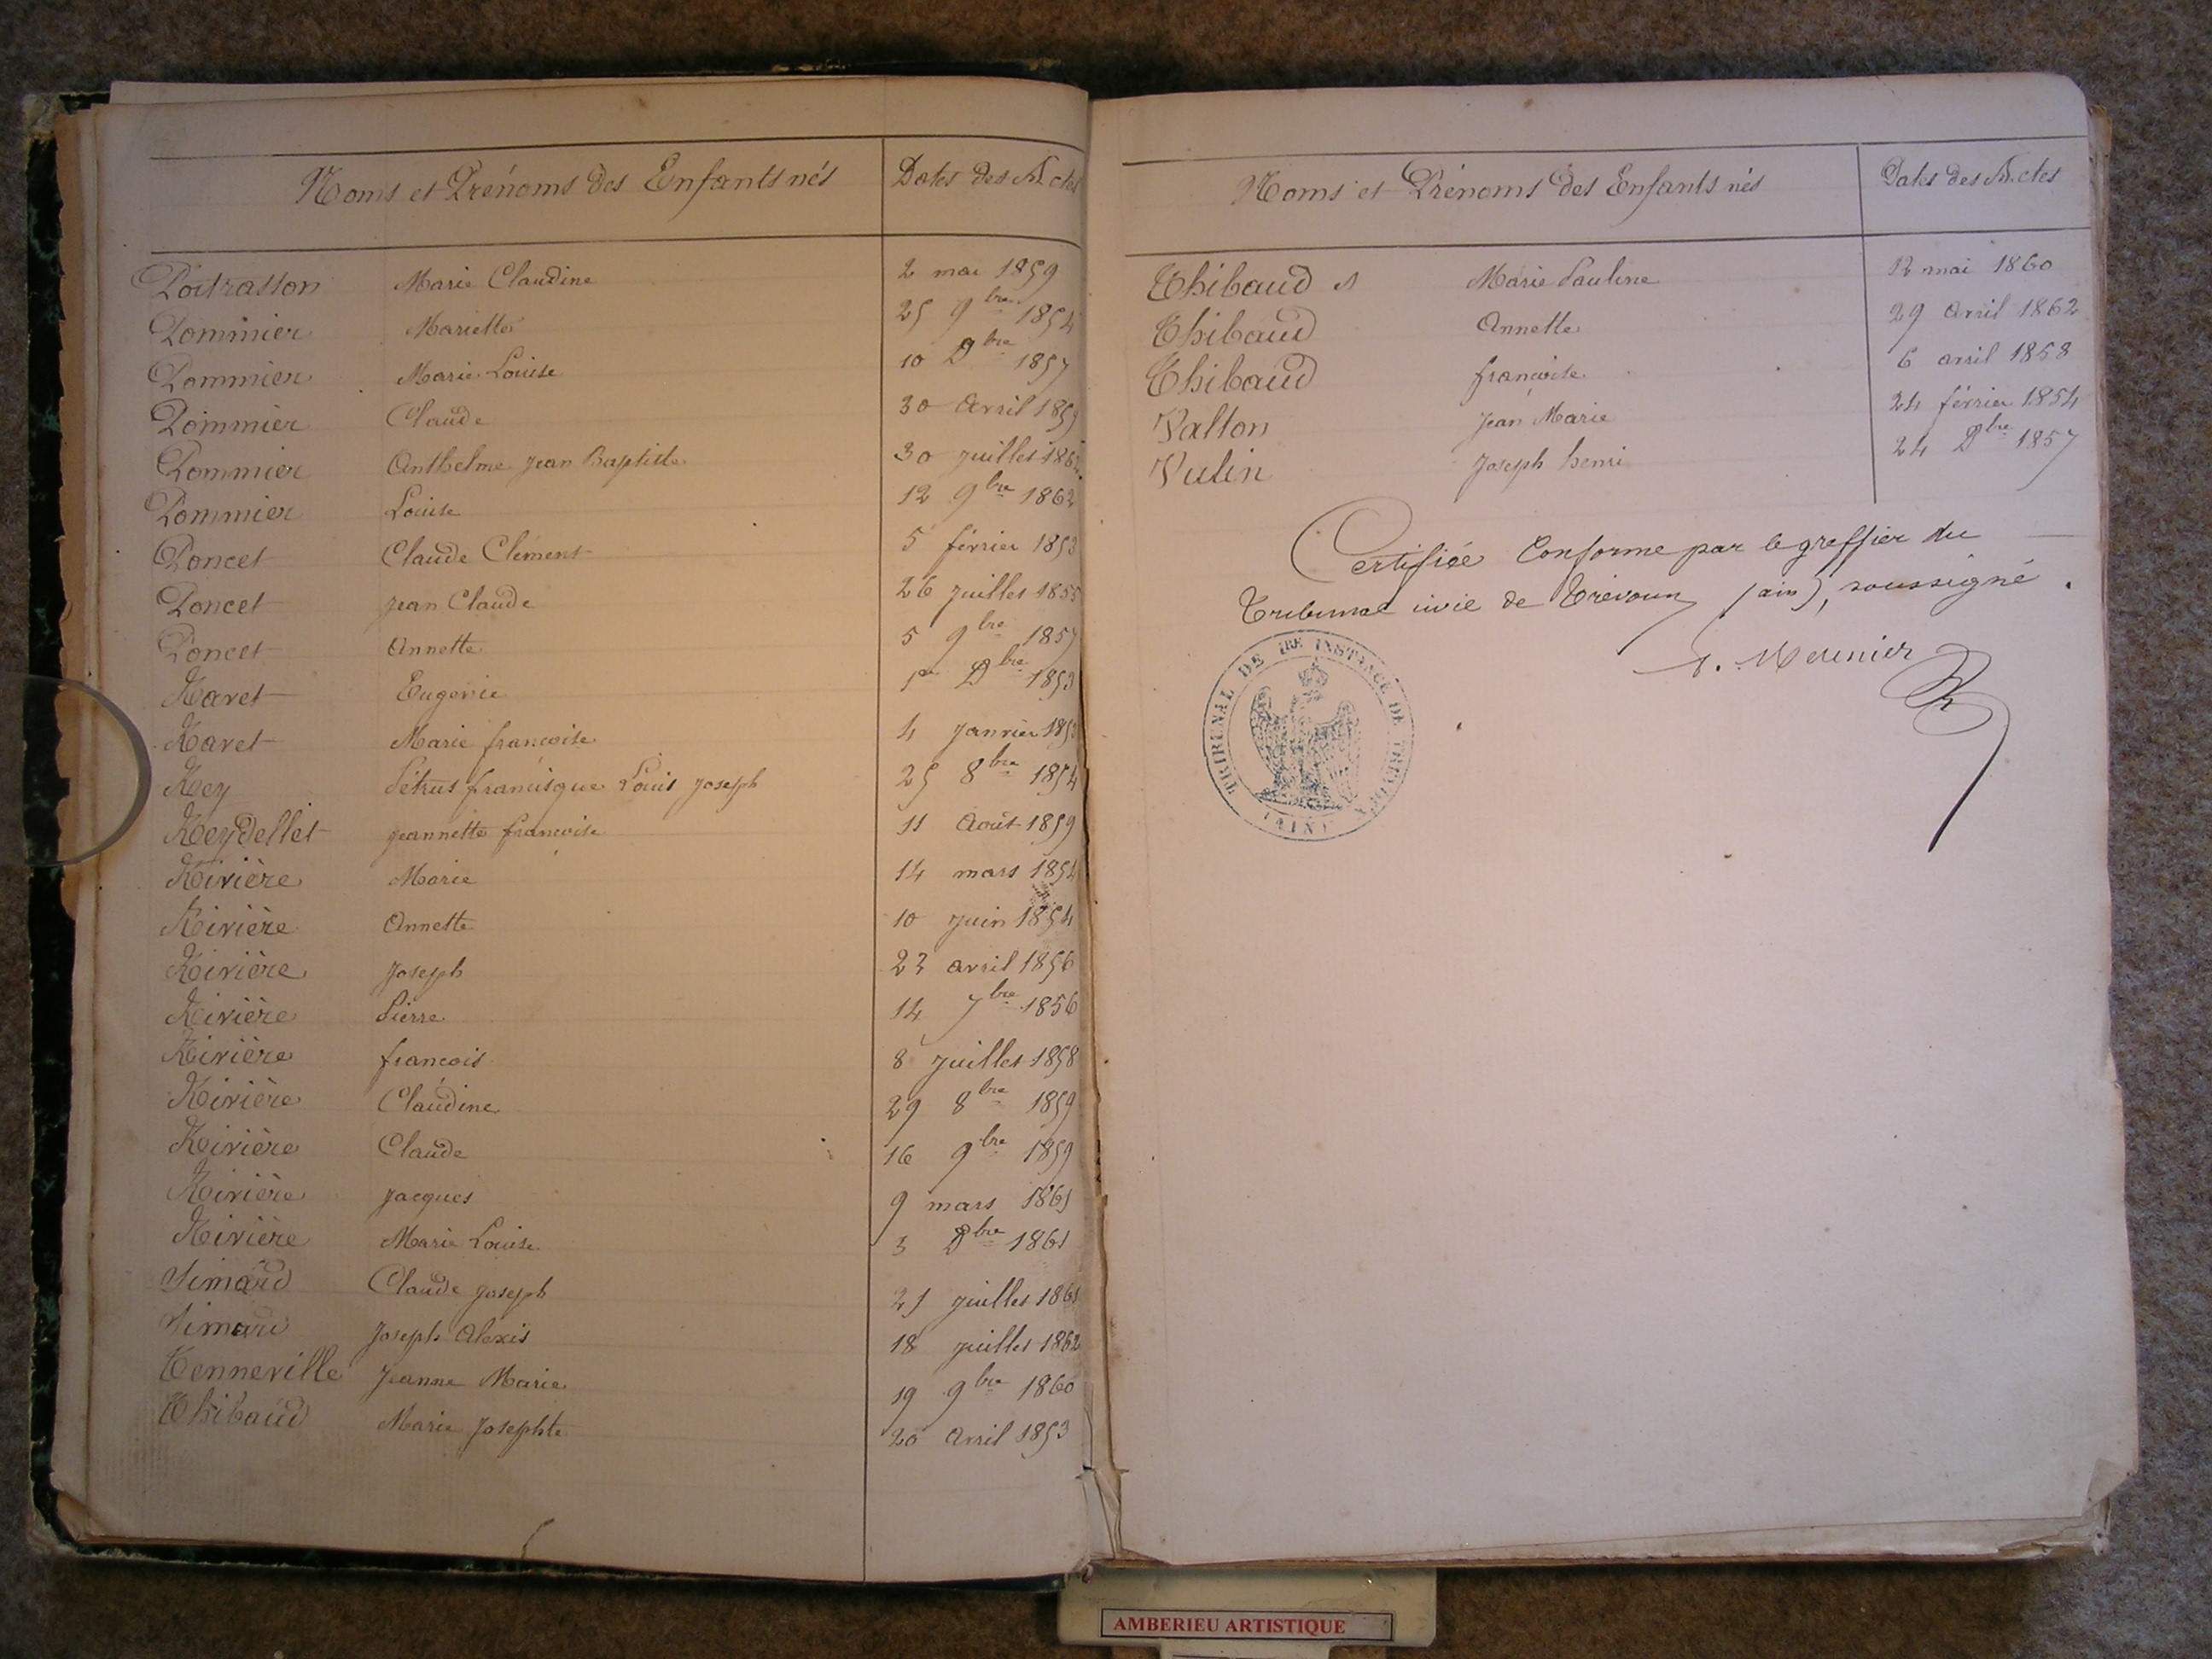 Noms et Prénoms des Enfants nés Dates des Actes
Poitrasson Marie Claudine 2 mai 1859
Pommier Mariette 25 9bre 1854
Pommier Marie Louise 10 Dbre 1857
Pommier Claude 30 Avril 1859
Pommier Anthelme Jean Baptiste 30 juillet
Pommier Louise 12 9bre 1862
Poncet Claude Clément 5 février 1853
Poncet Jean Claude 26 juillet 1855
Poncet Annette 5 9bre 1857
Ravet Eugenie 1er Dbre 1853
Ravet Marie francoise 4 janvier
Rey Pétrus francisque Louis Joseph 25 8bre 1854
Reydellet jeannette francoise 11 Août 1859
Rivière Marie 14 mars 1854
Rivière Annette 10 juin 1854
Rivière Joseph 23 avril 1856
Rivière Pierre 14 7bre 1856
Rivière francois 8 juillet 1858
Rivière Claudine 29 8bre 1859
Rivière Claude 16 9bre 1859
Rivière Jacques 9 mars 1861
Rivière Marie Louise 3 Dbre 1861
Simard Claude Joseph 21 juillet 1861
Simard Joseph Alexis 18 juillet 1862
Tenneville Jeanne Marie 19 9bre 1860
Thibaud Marie Josephte 20 Avril 1853
Noms et Prénoms des Enfants nés Dates des Actes
Thibaud Marie Pauline 12 mai 1860
Thibaud Annette 29 Avril 1862
Thibaud francoise 6 avril 1858
Vallon Jean Marie 24 février 1854
Vulin Joseph henri 24 Dbre 1857
Certifiée Conforme par le greffier du
Tribunal civil de Trévoux (ain), soussigné
Meunier
TRIBUNAL DE 1RE INSTANCE DE TREVOUX
(AIN)
AMBERIEU ARTISTIQUE